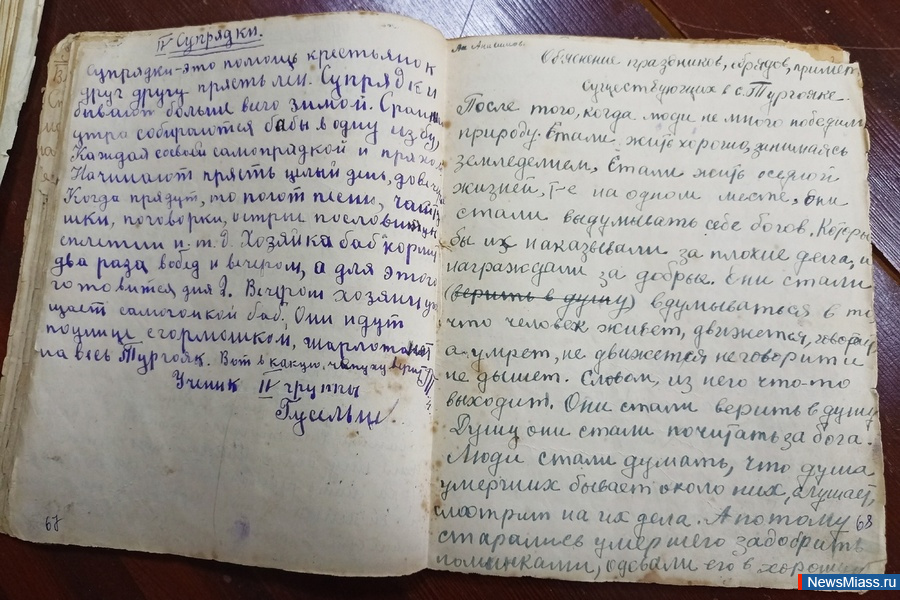 IV Супрядки.
Супрядки-это помощь крестьянок
друг другу прясть лен. Супрядки
бывают больше всего зимой. С ран
утра собираются бабы в одну избу,
Каждая со своей самопрядкой и
Начинают прясть целый день, до
Когда прядут, то поют песни,
шки, поговорки, острые пословицы
сплетни и. т. д. Хозяйка баб кормит
два раза в обед и вечером, а для этого
готовится дня 2. Вечером хозяин уго
щает самогонкой баб, Они идут
по улице с гармошкой,
на весь Тургояк. Вот в какую
Ученик IV группы
67
Ан Анисимов.
Объяснение праздников, обрядов, примет,
существующих в с. Тургояке.
После того, когда люди не много победили
природу. Стали жить хорошо, занимаясь
земледелием, Стали жить оседлой
жизней, т-е на одном месте, они
стали выдумывать себе богов. Которые
бы их наказывали за плохие дела, и
награждали за добрые. Они стали
(верить в душу) вдумываться в то
что человек живет, движется, говорит
а умрет, не движется не говорит и
не дышет. Словом, из него что-то
выходит. Они стали верить в душу
Душу они стали почитать за бога.
Люди стали думать, что душа
умерших бывает около них, слушает,
смотрит на их дела. А потому
68
старались умершего задобрить
поминками, одевали его в
NewsMiass.ru